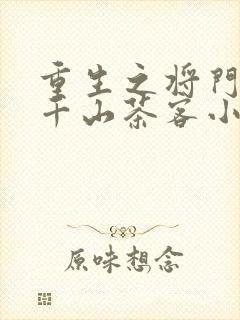 重生之将门
千山茶客小
原味想念